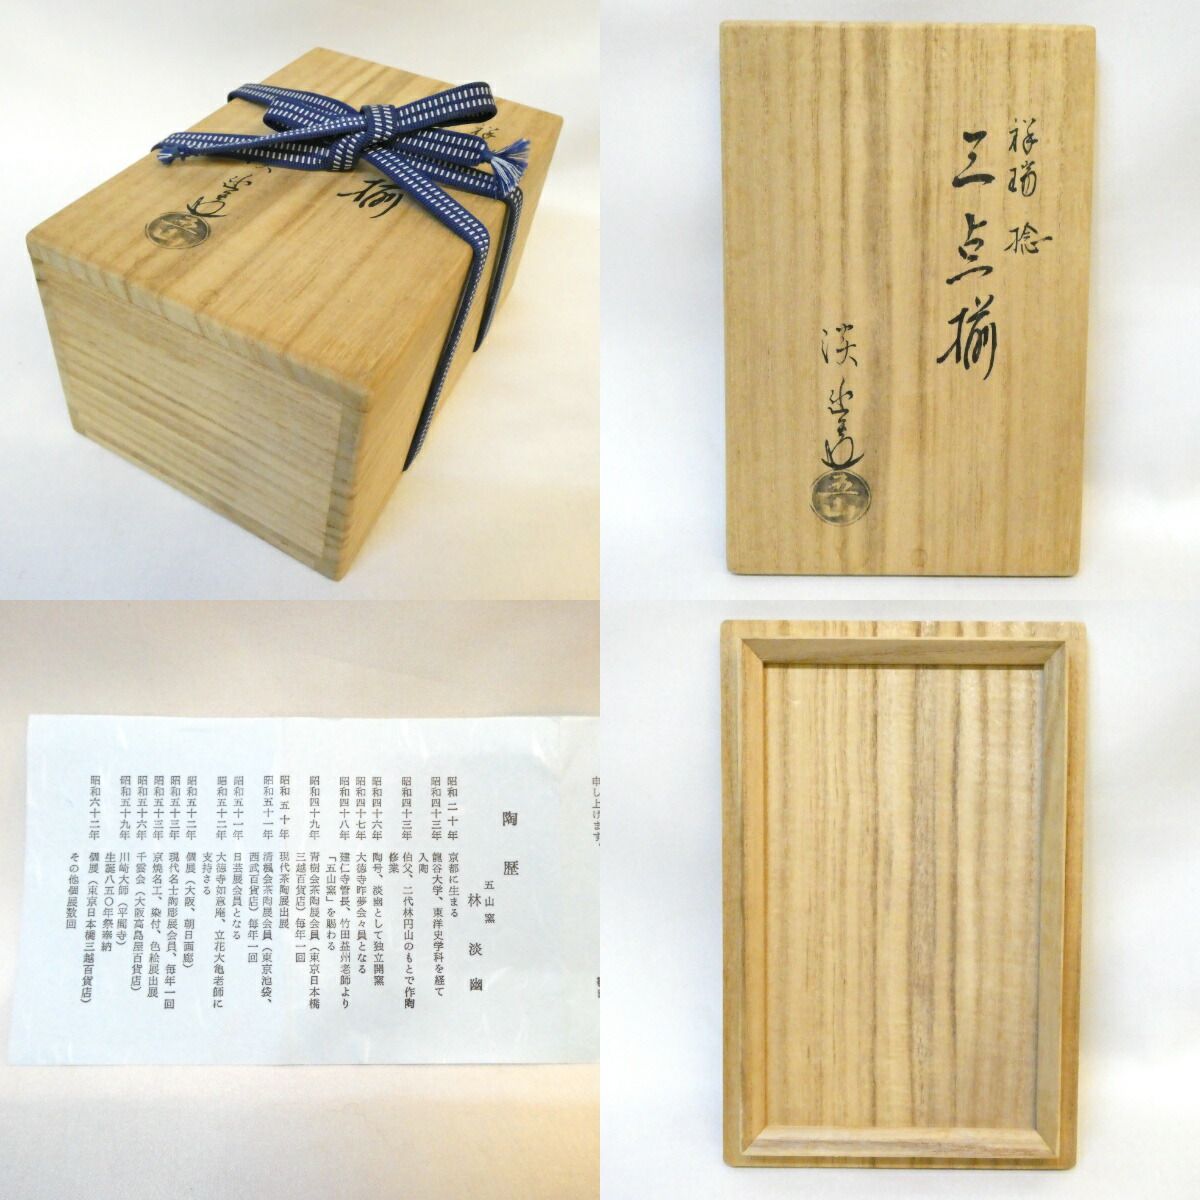 祥瑞捻
三点揃
淡幽造
五山
申し上げます。
陶歴
五山窯
林淡幽
昭和二十年 京都に生まる
昭和四十三年 龍谷大学、東洋史学科を経て
入陶
昭和四十三年 伯父、二代林円山のもとで作陶
修業
昭和四十六年 陶号、淡幽として独立開窯
昭和四十七年 大徳寺昨夢会々員となる
昭和四十八年 建仁寺管長、竹田益州老師より
「五山窯」を賜わる
昭和四十九年 青樹会茶陶展会員(東京日本橋
三越百貨店)毎年一回
昭和五十年 現代茶陶展出展
昭和五十一年 清楓会茶陶展会員(東京池袋、
西武百貨店)毎年一回
昭和五十一年 日芸展会員となる
昭和五十二年 大徳寺如意庵、立花大亀老師に
支持さる
昭和五十二年 個展(大阪、朝日画廊)
昭和五十三年 現代名士陶彫展会員、毎年一回
昭和五十三年 京焼名工、染付、色絵展出展
昭和五十六年 千雲会(大阪高島屋百貨店)
昭和五十九年 川崎大師(平間寺)
生誕八五〇年祭奉納
昭和六十二年 個展(東京日本橋三越百貨店)
その他個展数回